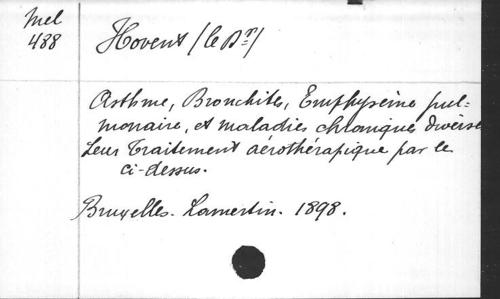 Mel
488
Hovent (le Dr)
Asthme, Bronchites, Emphysème pul-
monaire, et maladies chroniques diverses
Leur Traitement aérothérapique par le
ci-dessus.
Bruxelles. Lamertin. 1898.